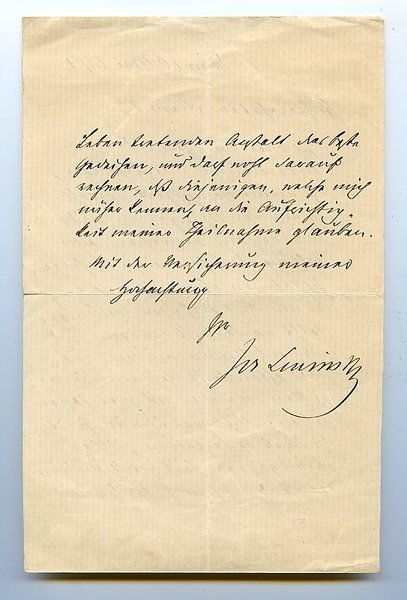 Leben tretenden Anstalt das beste
Gedeihen, und darf wohl darauf
rechnen, dß diejenigen, welche mich
näher kennen, an die Aufrichtig-
keit meiner Theilnahme glauben.
Mit der Versicherung meiner
Hochachtung
Ihr
Jos Lewinsky